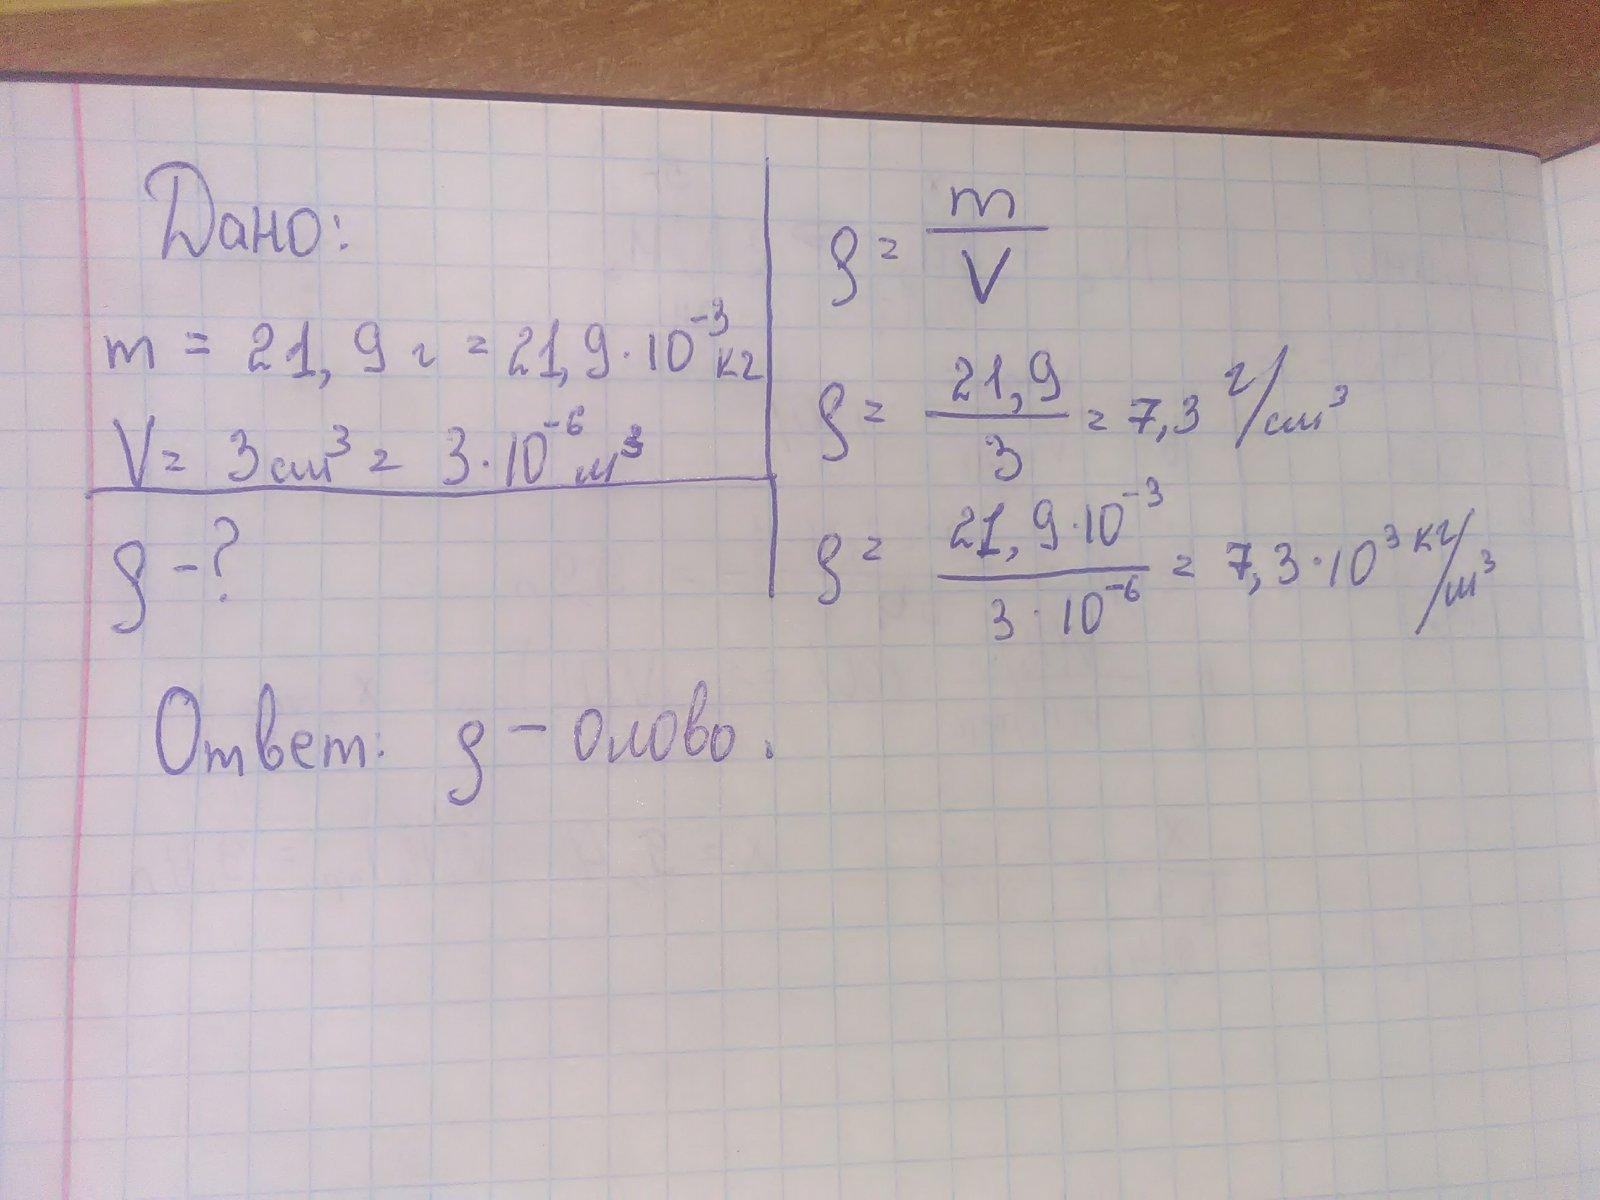 Дано:
m = 21,9 г = 21,9·10⁻³ кг
V = 3 см³ = 3·10⁻⁶ м³
ρ - ?
ρ = m/V
ρ = 21,9/3 = 7,3 г/см³
ρ = 21,9·10⁻³/3·10⁻⁶ = 7,3·10³ кг/м³
Ответ: ρ - олово.